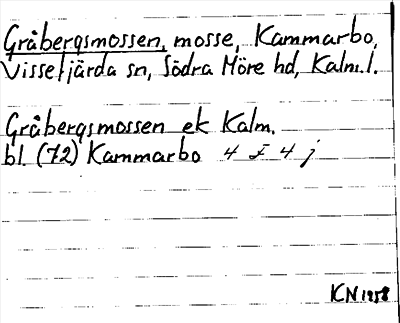 Gråbergsmossen, mosse, Kammarbo,
Vissefjärda sn, Södra Möre hd, Kalm. l.
Gråbergsmossen ek Kalm.
bl. (72) Kammarbo 4 I 4 j
KN 1958